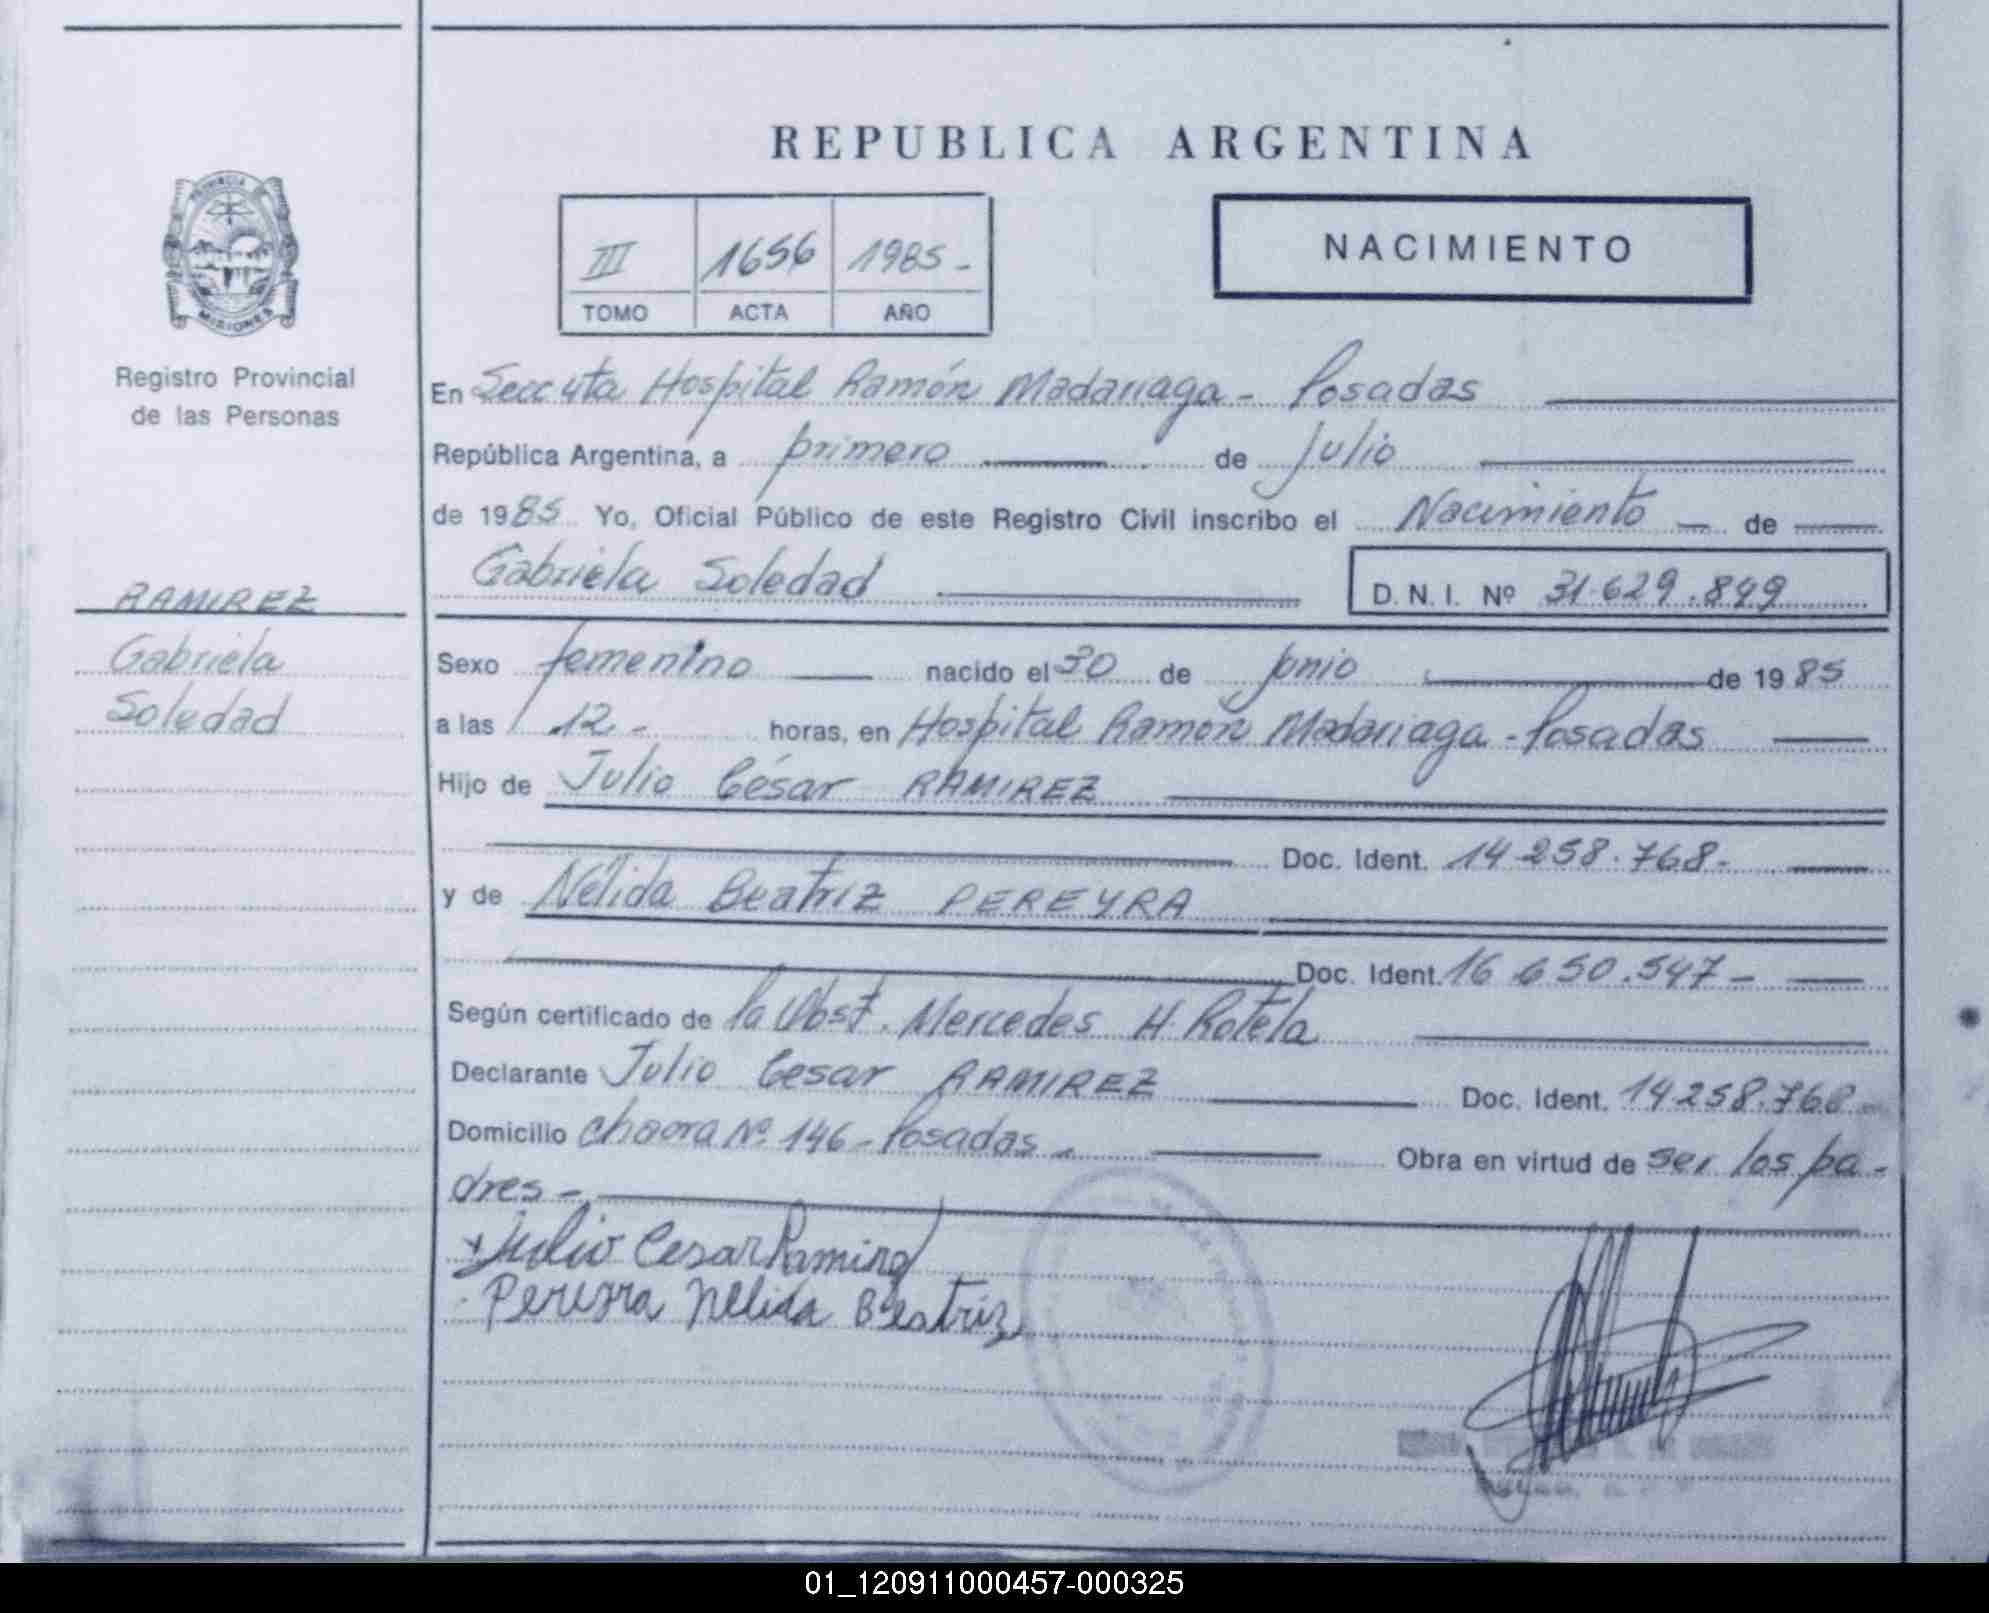 REPUBLICA ARGENTINA
PROVINCIA
MISIONES
Registro Provincial
de las Personas
III 1656 1985-
TOMO ACTA AÑO
NACIMIENTO
En Secc 4ta Hospital Ramón Madariaga - Posadas
República Argentina, a primero de Julio
de 1985 Yo, Oficial Público de este Registro Civil inscribo el Nacimiento de
Gabriela Soledad D. N. I. Nº 31.629.849
RAMIREZ
Gabriela
Soledad
Sexo femenino nacido el 30 de Junio de 1985
a las 12- horas, en Hospital Ramón Madariaga - Posadas
Hijo de Julio César RAMIREZ
Doc. Ident. 14.258.768-
y de Nélida Beatriz PEREYRA
Doc. Ident. 16.650.547-
Según certificado de la Obst. Mercedes H. Rotela
Declarante Julio Cesar RAMIREZ Doc. Ident. 14258.768-
Domicilio chacra Nº 146 - Posadas - Obra en virtud de ser los pa-
dres -
Julio Cesar Ramirez
Pereyra Nelida Beatriz
01_120911000457-000325